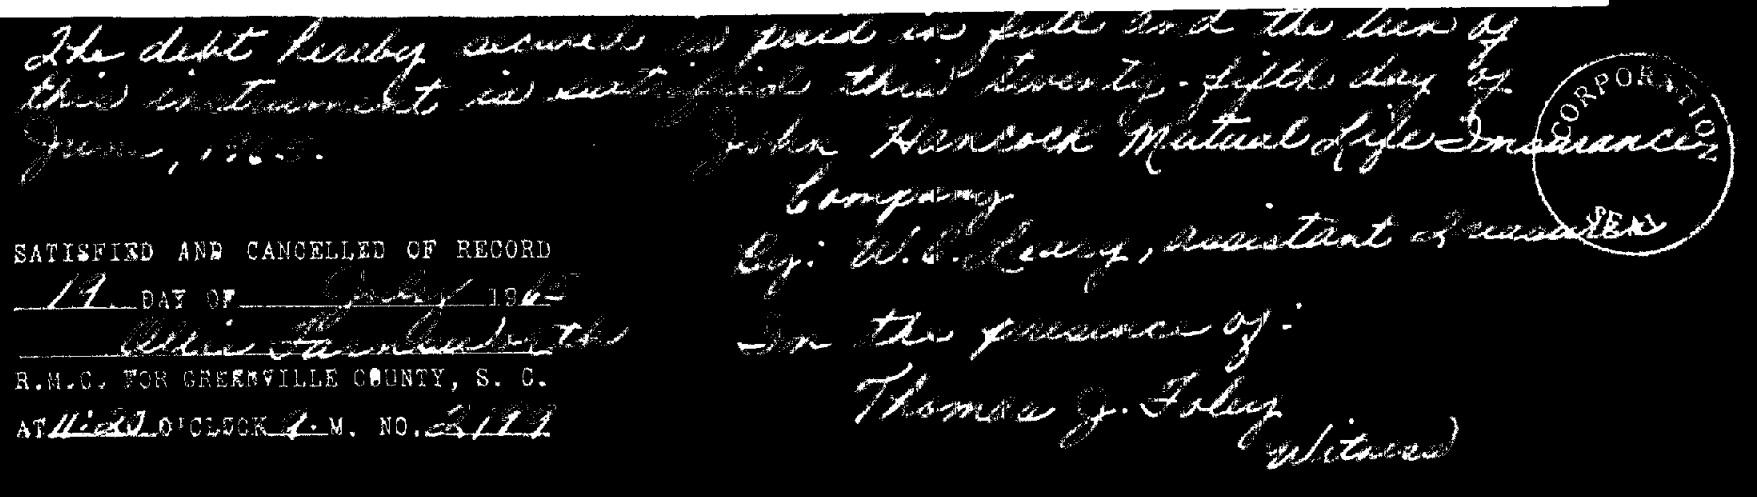 The debt hereby secured is paid in full and the lien of
this instrument is satisfied this twenty-fifth day of
June, 1965.
John Hancock Mutual Life Insurance
Company
By: W. S. Leary, Assistant Treasurer
In the presence of:
Thomas J. Foley
Witness
CORPORATION
SEAL
SATISFIED AND CANCELLED OF RECORD
19 DAY OF July 1965
Ollie Farnsworth
R.M.C. FOR GREENVILLE COUNTY, S. C.
AT 11:20 O'CLOCK A. M. NO.